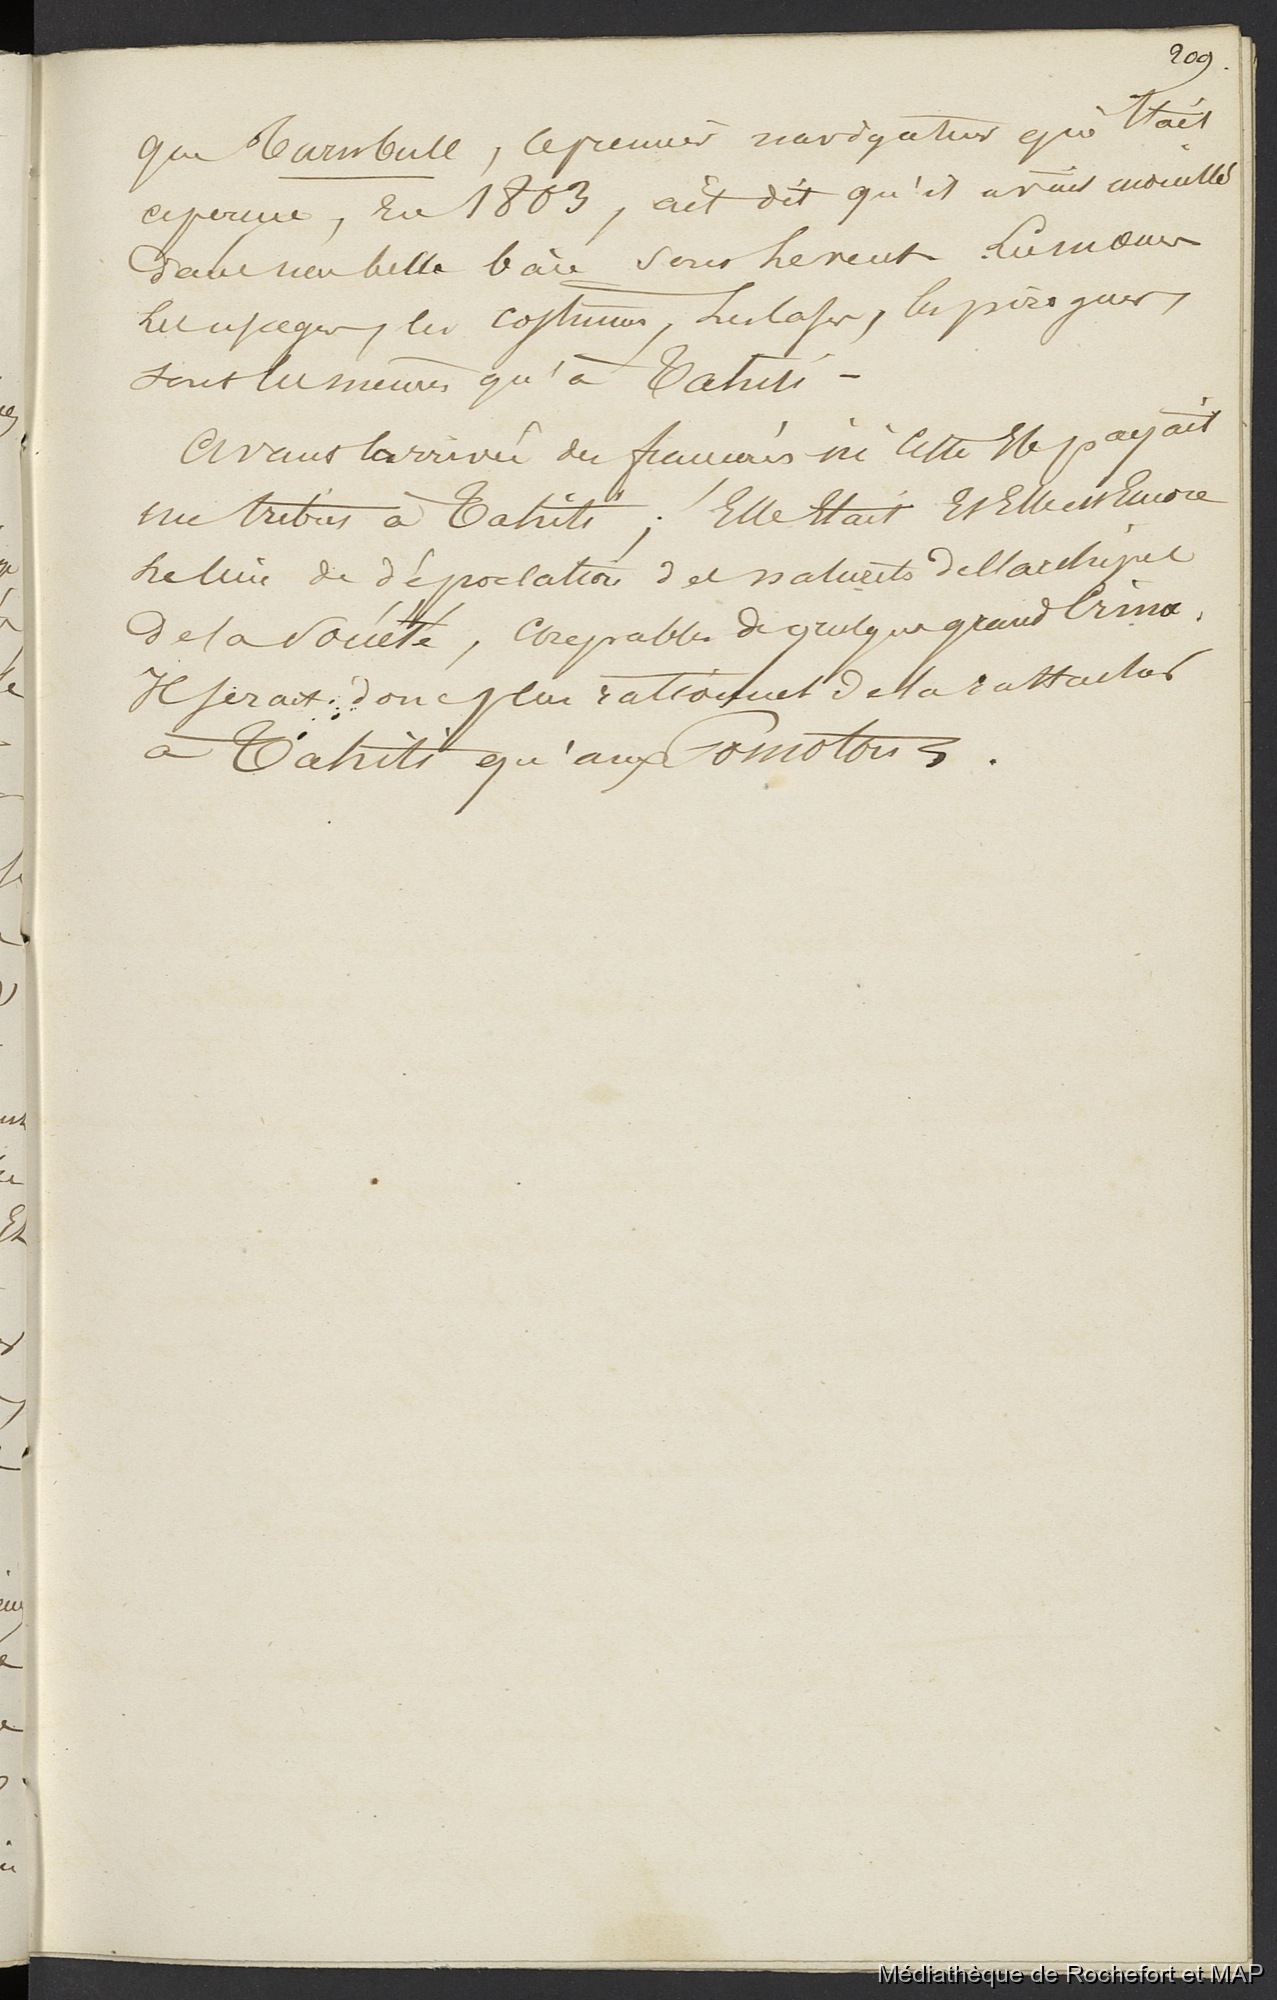 209.
que Turnbull, le premier navigateur qui l'ait
aperçue, en 1803, ait dit qu'il avait mouillé
dans une belle baie sous le vent. Les mœurs
les usages, les costumes, les cases, les pirogues,
sont les mêmes qu'à Tahiti –
Avant l'arrivée des français ici cette Ile payait
un tribut à Tahiti ; Elle Etait Et Elle est Encore
le lieu de déportation des naturels de l'archipel
de la Société, coupables de quelque grand Crime.
Il serait donc plus rationnel de la rattacher
à Tahiti qu'aux Pomotous.
Médiathèque de Rochefort et MAP